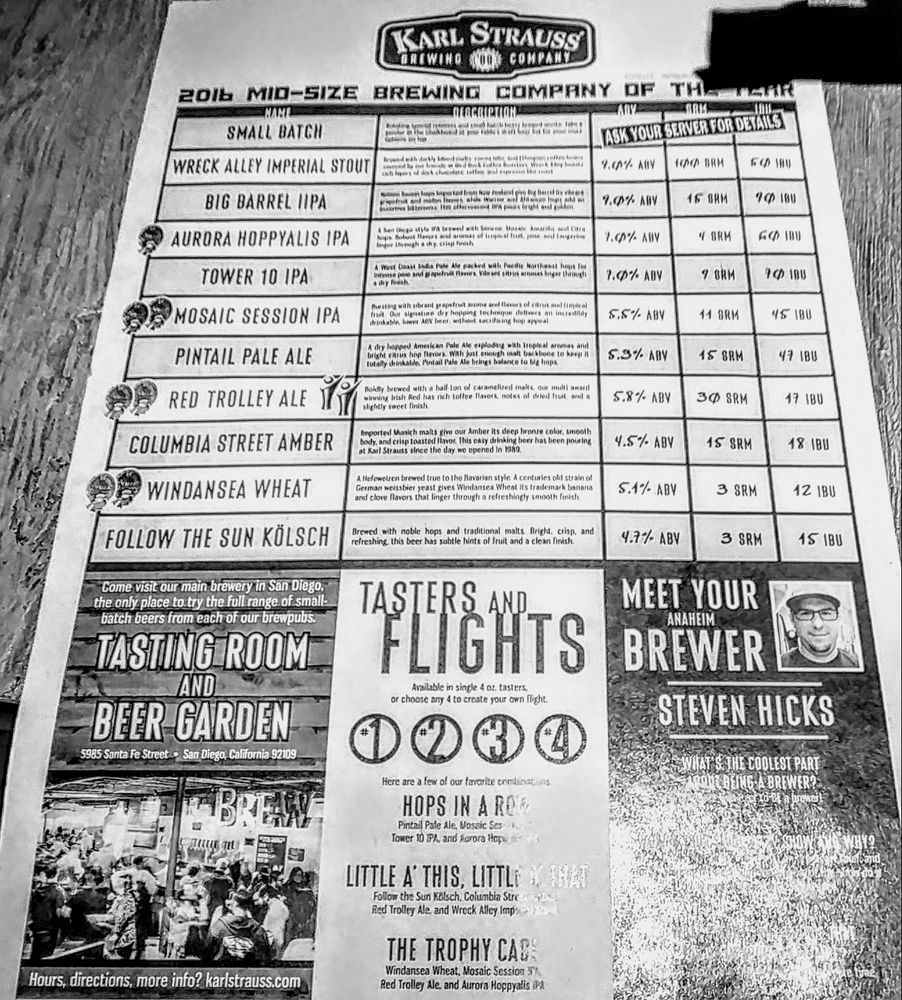 KARL STRAUSS
BREWING COMPANY
2016 MID-SIZE BREWING COMPANY OF THE YEAR
NAME DESCRIPTION ABV SRM IBU
SMALL BATCH
ASK YOUR SERVER FOR DETAILS
WRECK ALLEY IMPERIAL STOUT
9.0% ABV 100 SRM 50 IBU
BIG BARREL IIPA
9.0% ABV 15 SRM 90 IBU
AURORA HOPPYALIS IPA
A San Diego style IPA brewed with Simcoe, Mosaic, Amarillo and Citra
hops. Robust flavors and aromas of tropical fruit, pine, and tangerine
linger through a dry, crisp finish.
7.0% ABV 4 SRM 60 IBU
TOWER 10 IPA
A West Coast India Pale Ale packed with Pacific Northwest hops for
intense pine and grapefruit flavors. Vibrant citrus aromas linger through
a dry finish.
7.0% ABV 9 SRM 70 IBU
MOSAIC SESSION IPA
Bursting with vibrant grapefruit aroma and flavors of citrus and tropical
fruit. Our signature dry hopping technique delivers an incredibly
drinkable, lower ABV beer, without sacrificing hop appeal.
5.5% ABV 11 SRM 45 IBU
PINTAIL PALE ALE
A dry hopped American Pale Ale exploding with tropical aromas and
bright citrus hop flavors. With just enough malt backbone to keep it
totally drinkable, Pintail Pale Ale brings balance to big hops.
5.3% ABV 15 SRM 47 IBU
RED TROLLEY ALE
Boldly brewed with a half ton of caramelized malts, our multi award
winning Irish Red has rich toffee flavors, notes of dried fruit, and a
slightly sweet finish.
5.8% ABV 30 SRM 17 IBU
COLUMBIA STREET AMBER
Imported Munich malts give our Amber its deep bronze color, smooth
body, and crisp toasted flavor. This easy drinking beer has been pouring
at Karl Strauss since the day we opened in 1989.
4.5% ABV 15 SRM 18 IBU
WINDANSEA WHEAT
A Hefeweizen brewed true to the Bavarian style. A centuries old strain of
German weissbier yeast gives Windansea Wheat its trademark banana
and clove flavors that linger through a refreshingly smooth finish.
5.1% ABV 3 SRM 12 IBU
FOLLOW THE SUN KÖLSCH
Brewed with noble hops and traditional malts. Bright, crisp, and
refreshing, this beer has subtle hints of fruit and a clean finish.
4.7% ABV 3 SRM 15 IBU
Come visit our main brewery in San Diego,
the only place to try the full range of small-
batch beers from each of our brewpubs.
TASTING ROOM
AND
BEER GARDEN
5985 Santa Fe Street • San Diego, California 92109
BREW
Hours, directions, more info? karlstrauss.com
TASTERS AND
FLIGHTS
Available in single 4 oz. tasters,
or choose any 4 to create your own flight.
#1 #2 #3 #4
Here are a few of our favorite combinations
HOPS IN A ROW
Pintail Pale Ale, Mosaic
Tower 10 IPA, and Aurora
LITTLE A' THIS, LITTLE A' THAT
Follow the Sun Kölsch, Columbia
Red Trolley Ale, and Wreck Alley
THE TROPHY CASE
Windansea Wheat, Mosaic Session
Red Trolley Ale, and Aurora Hoppyalis IPA
MEET YOUR
ANAHEIM
BREWER
STEVEN HICKS
WHAT'S THE COOLEST PART
ABOUT BEING A BREWER?
to be a brewer!
AND WHY?